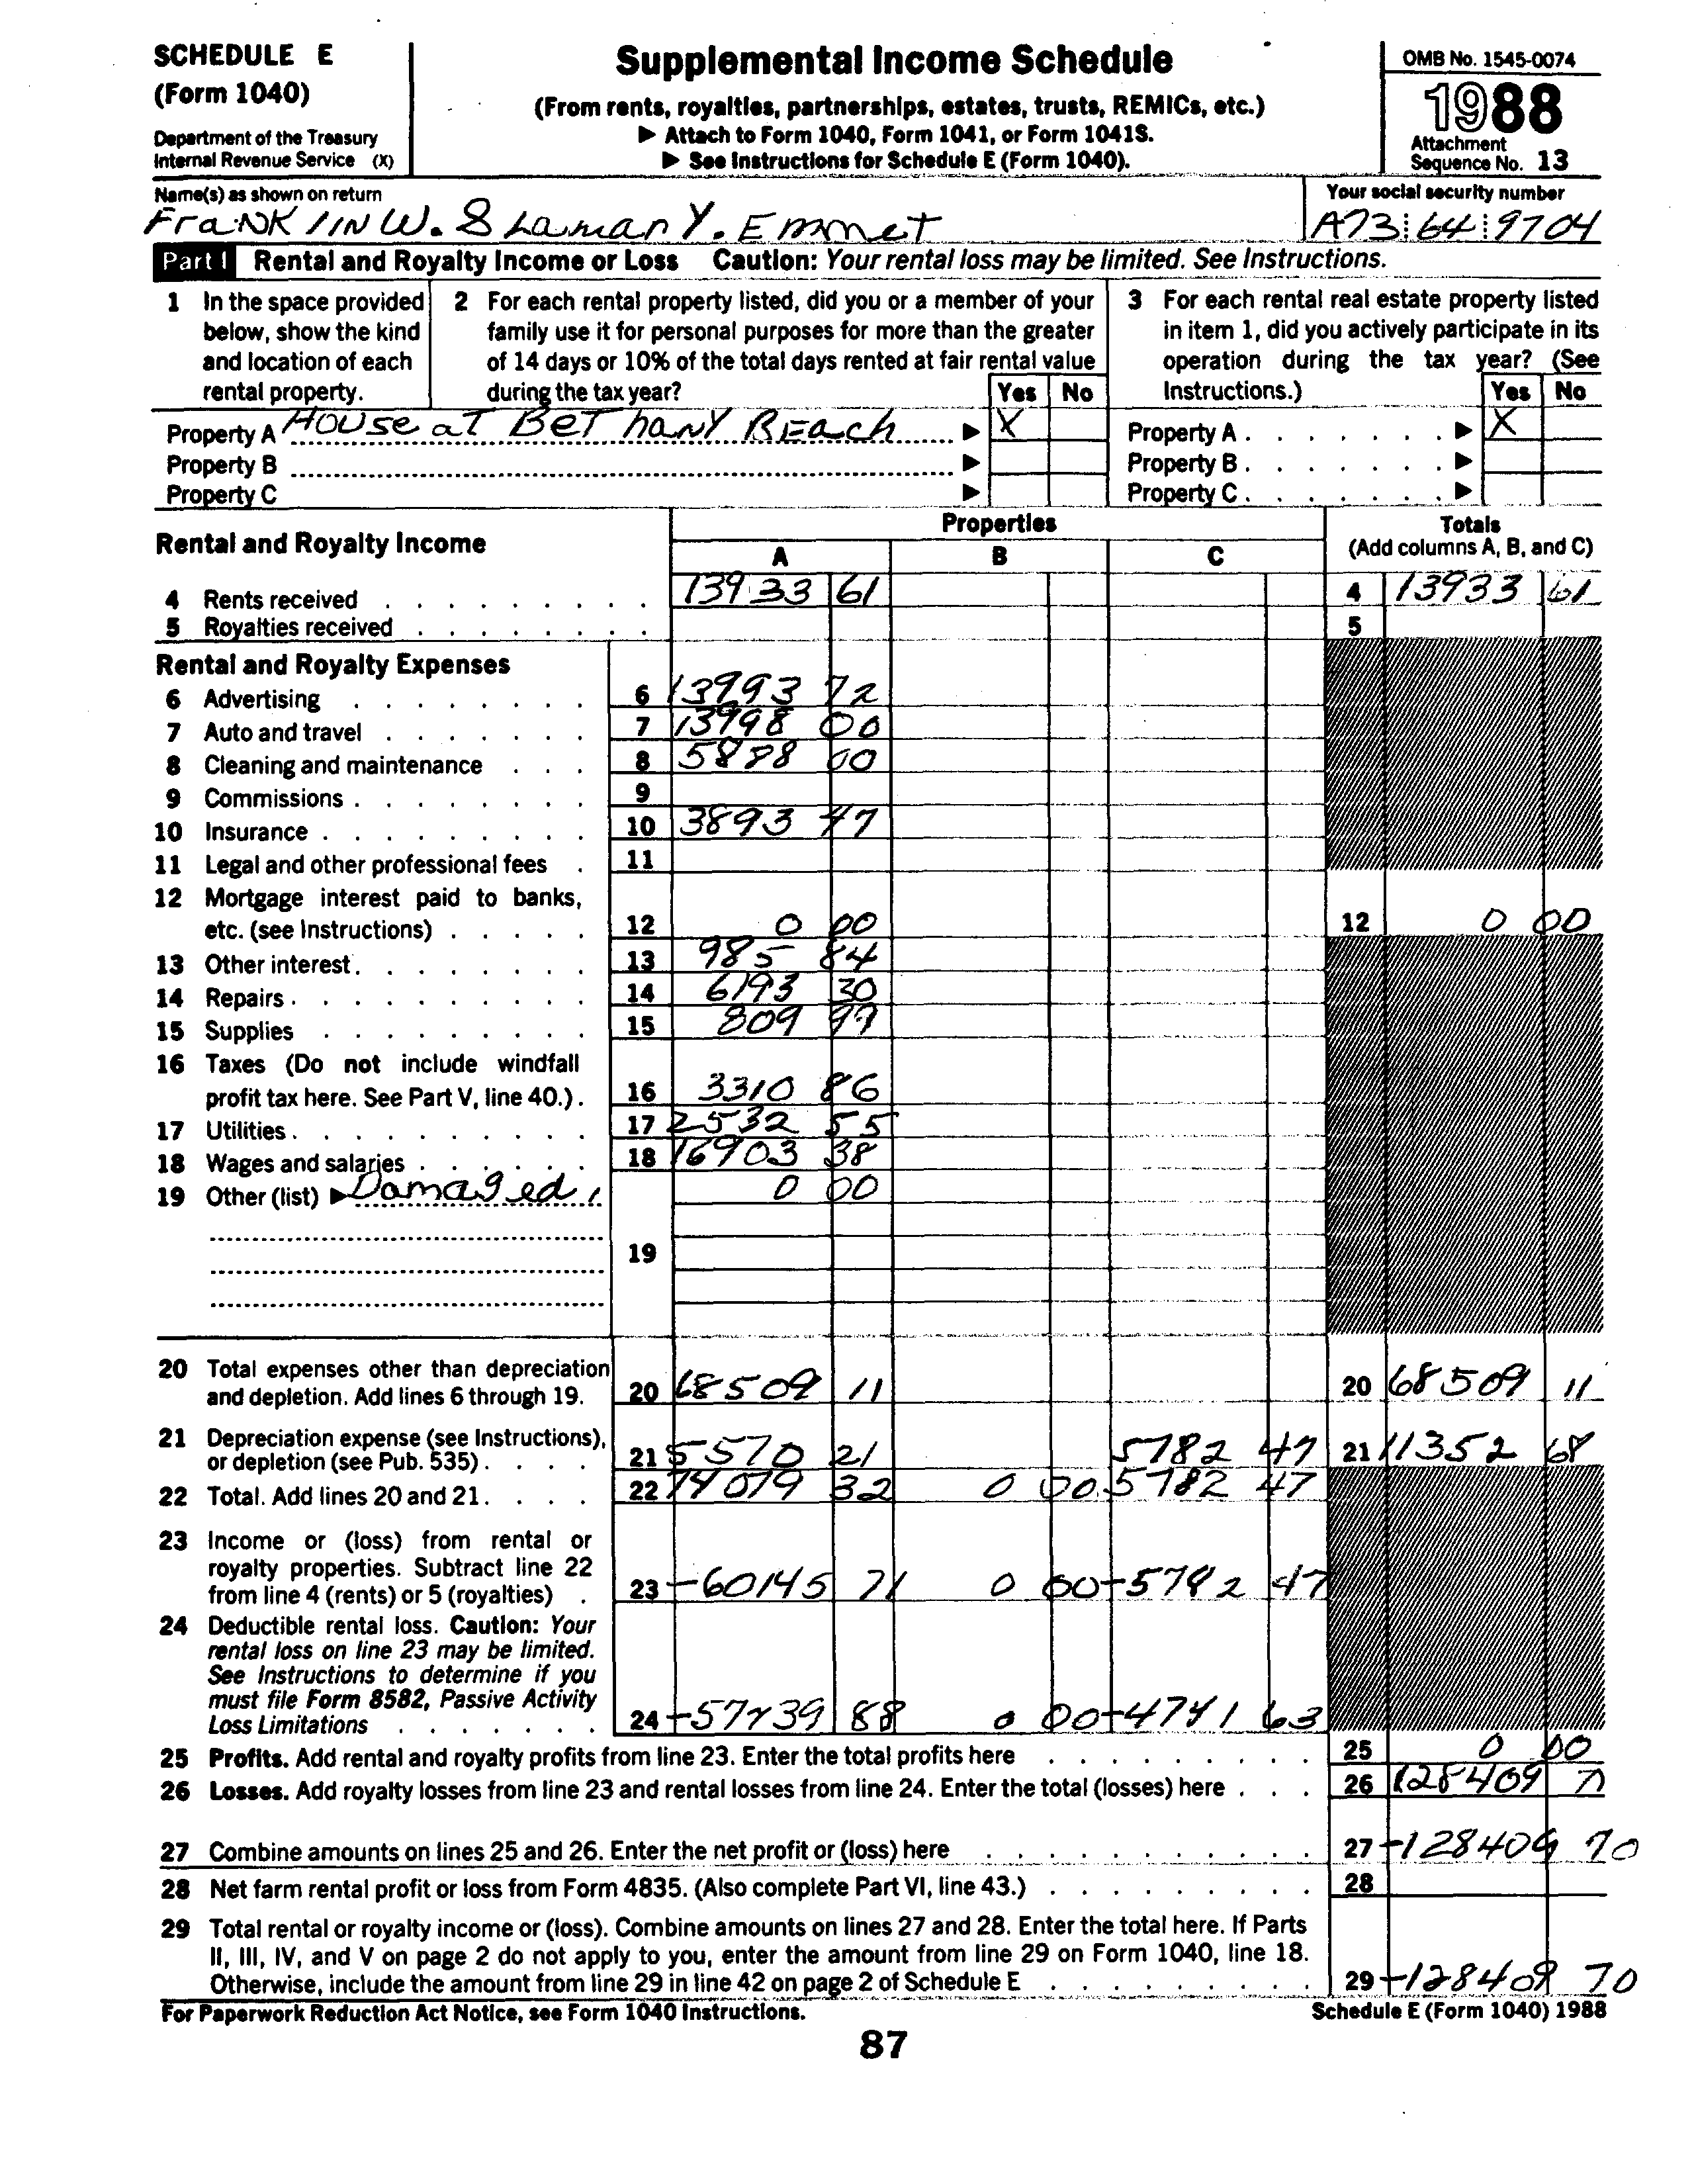 SCHEDULE E
(Form 1040)
Department of the Treasury
Internal Revenue Service (X)
Supplemental Income Schedule
(From rents, royalties, partnerships, estates, trusts, REMICs, etc.)
▶ Attach to Form 1040, Form 1041, or Form 1041S.
▶ See Instructions for Schedule E (Form 1040).
OMB No. 1545-0074
1988
Attachment
Sequence No. 13
Name(s) as shown on return
FranklIN W. & Laman Y. Emmet
Your social security number
A73 64 9704
Part I Rental and Royalty Income or Loss Caution: Your rental loss may be limited. See Instructions.
1 In the space provided
below, show the kind
and location of each
rental property.
2 For each rental property listed, did you or a member of your
family use it for personal purposes for more than the greater
of 14 days or 10% of the total days rented at fair rental value
during the tax year? Yes No
3 For each rental real estate property listed
in item 1, did you actively participate in its
operation during the tax year? (See
Instructions.) Yes No
Property A House at Bethany Beach ▶ X
Property B ▶
Property C ▶
Property A ▶ X
Property B ▶
Property C ▶
Rental and Royalty Income
Properties
A B C
Totals
(Add columns A, B, and C)
4 Rents received 13933 61 4 13933 61
5 Royalties received 5
Rental and Royalty Expenses
6 Advertising 6 13993 72
7 Auto and travel 7 13998 00
8 Cleaning and maintenance 8 5888 00
9 Commissions 9
10 Insurance 10 3893 47
11 Legal and other professional fees 11
12 Mortgage interest paid to banks,
etc. (see Instructions) 12 0 00 12 0 00
13 Other interest 13 985 84
14 Repairs 14 6193 30
15 Supplies 15 809 99
16 Taxes (Do not include windfall
profit tax here. See Part V, line 40.) 16 3310 86
17 Utilities 17 2532 55
18 Wages and salaries 18 16903 38
19 Other (list) ▶ Damaged 0 00
19
20 Total expenses other than depreciation
and depletion. Add lines 6 through 19. 20 68509 11 20 68509 11
21 Depreciation expense (see Instructions),
or depletion (see Pub. 535) 21 5570 21 5782 47 21 11352 68
22 Total. Add lines 20 and 21 22 74079 32 0 00 5782 47
23 Income or (loss) from rental or
royalty properties. Subtract line 22
from line 4 (rents) or 5 (royalties) 23 -60145 71 0 00 -5782 47
24 Deductible rental loss. Caution: Your
rental loss on line 23 may be limited.
See Instructions to determine if you
must file Form 8582, Passive Activity
Loss Limitations 24 88 0 00 -4741 63
25 Profits. Add rental and royalty profits from line 23. Enter the total profits here 25 0 00
26 Losses. Add royalty losses from line 23 and rental losses from line 24. Enter the total (losses) here 26 128409
27 Combine amounts on lines 25 and 26. Enter the net profit or (loss) here 27 -128409 70
28 Net farm rental profit or loss from Form 4835. (Also complete Part VI, line 43.) 28
29 Total rental or royalty income or (loss). Combine amounts on lines 27 and 28. Enter the total here. If Parts
II, III, IV, and V on page 2 do not apply to you, enter the amount from line 29 on Form 1040, line 18.
Otherwise, include the amount from line 29 in line 42 on page 2 of Schedule E 29 -128409 70
For Paperwork Reduction Act Notice, see Form 1040 Instructions.
Schedule E (Form 1040) 1988
87